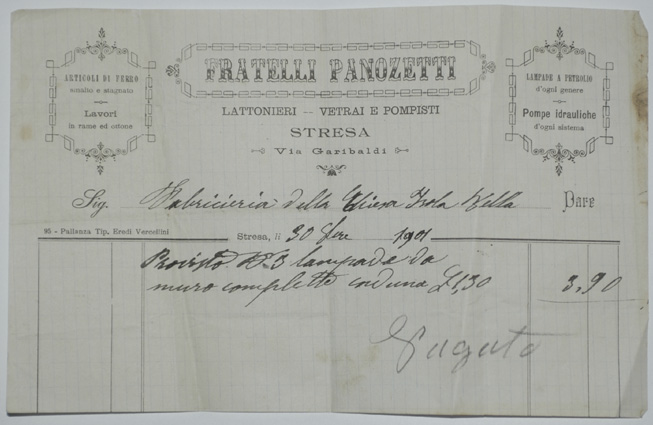 ARTICOLI DI FERRO
smalto e stagnato
Lavori
in rame ed ottone
FRATELLI PANOZETTI
LATTONIERI — VETRAI E POMPISTI
STRESA
Via Garibaldi
LAMPADE A PETROLIO
d'ogni genere
Pompe idrauliche
d'ogni sistema
Sig. Fabricieria della Chiesa Isola Bella Dare
95 - Pallanza Tip. Eredi Vercellini
Stresa, li 30 1901
Provisto N. 3 lampade da
muro complette cad una £ 1,30 3,90
Pagato